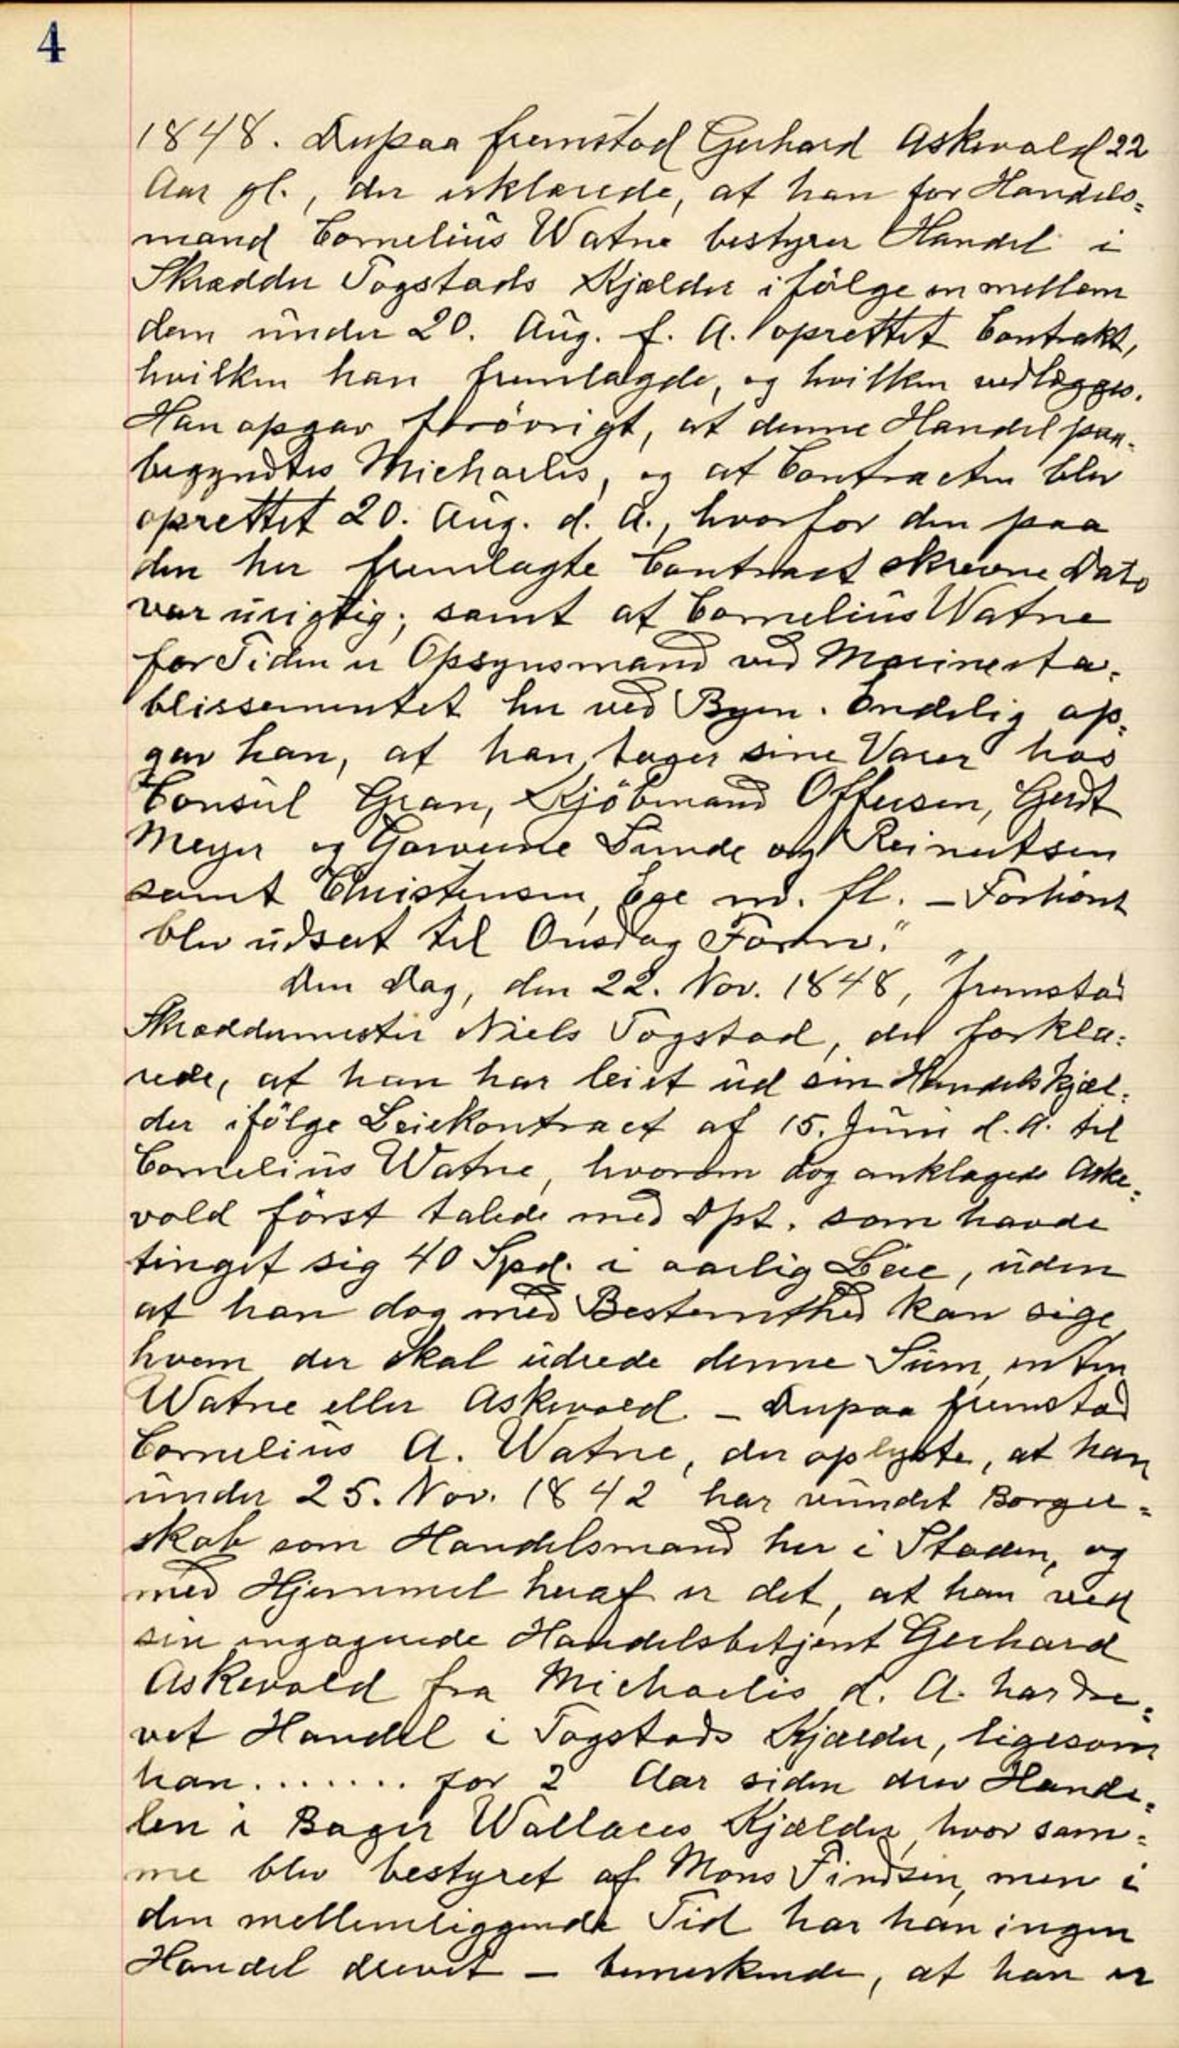 4
1848. Derpaa fremstod Gerhard Askevold 22
Aar gl., der erklærede, at han for Handels=
mand Cornelius Watne bestyrer Handel i
Skrædder Togstads Kjælder ifölge en mellem
dem under 20. Aug. f. A. oprettet Contrakt,
hvilken han fremlagde, og hvilken vedlægges.
Han opgav forövrigt, at denne Handel paa-
begyndtes Michaelis, og at Contracten blev
oprettet 20. Aug. d. A., hvorfor den paa
den her fremlagte Contract skrevne Dato
var urigtig; samt at Cornelius Watne
for Tiden er Opsynsmand ved Marineeta-
blissementet her ved Byen. Endelig op-
gav han, at han tager sine Varer hos
Consul Gran, Kjöbmand Offersen, Gerdt
Meyer og Garverne Sunde og Reinertsen
samt Christensen, Ege m. fl. – Forhöret
blev udsat til Onsdag Form."
Den Dag, den 22. Nov. 1848, "fremstod
Skræddermester Niels Togstad, der forkla=
rede, at han har leiet ud sin Handelskjæl=
der ifölge Leiekontract af 15. Juni d. A. til
Cornelius Watne, hvorom dog anklagede Aske=
vold först talede med Dpt. som havde
tinget sig 40 Spd. i aarlig Leie, uden
at han dog med Bestemthed kan sige
hvem der skal udrede denne Sum, enten
Watne eller Askevold. – Derpaa fremstod
Cornelius A. Watne, der oplyste, at han
under 25. Nov. 1842 har vundet Borger=
skab som Handelsmand her i Staden, og
med Hjemmel heraf er det, at han ved
sin engagerede Handelsbetjent Gerhard
Askevold fra Michaelis d. A. har dre=
vet Handel i Togstads Kjælder, ligesom
han ....... for 2 Aar siden drev Hande=
len i Bager Wallaces Kjælder, hvor sam=
me blev bestyret af Mons Findsen, men i
den mellemliggende Tid har han ingen
Handel drevet – bemerkende, at han er